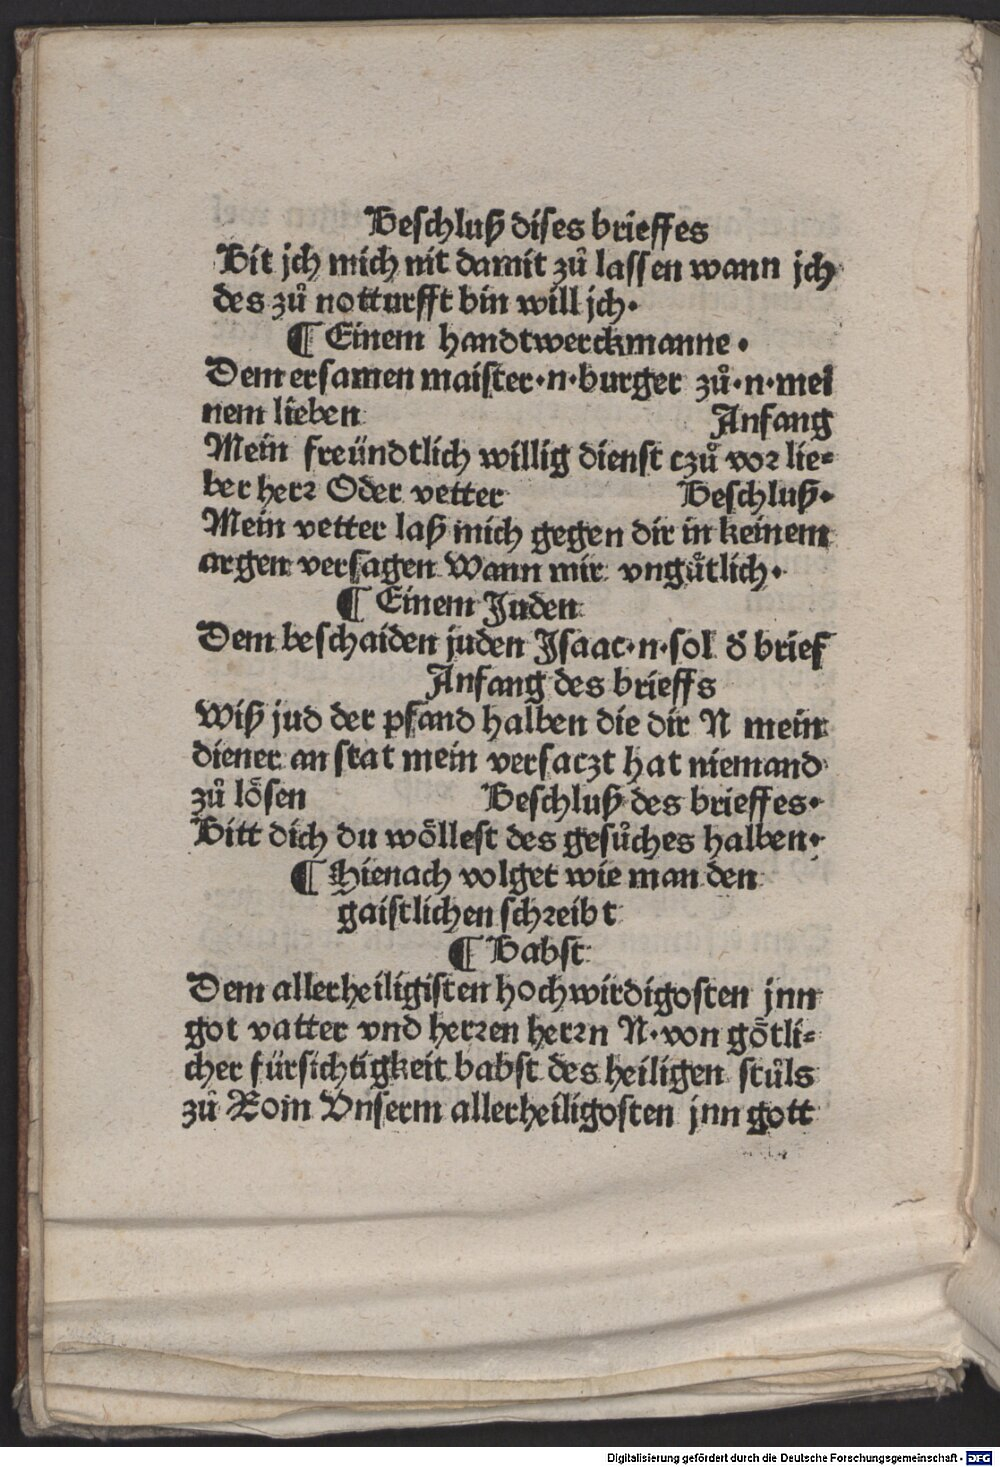 Beschluß dises brieffes
Bit jch mich nit damit zů lassen wann jch
des zů notturfft bin will jch·
¶ Einem handtwerckmanne·
Dem ersamen maister·n·burger zů·n·mei
nem lieben Anfang
Mein freündtlich willig dienst czů vor lie⸗
ber herr Oder vetter Beschluß·
Mein vetter laß mich gegen dir in keinem
argen versagen Wann mir vngůtlich·
¶ Einem Juden
Dem beschaiden juden Jsaac·n·sol d̄ brief
Anfang des brieffs
Wiß jud der pfand halben die dir N mein
diener an stat mein versaczt hat niemand
zů lösen Beschluß des brieffes·
Bitt dich du wöllest des gesůches halben·
¶ Hienach volget wie man den
gaistlichen schreibt
¶ Babst
Dem allerheiligisten hochwirdigosten jnn
got vatter vnd herren herrn N·von götli⸗
cher fürsichtigkeit babst des heiligen stůls
zů Rom Vnserm allerheiligosten jnn gott
Digitalisierung gefördert durch die Deutsche Forschungsgemeinschaft - DFG